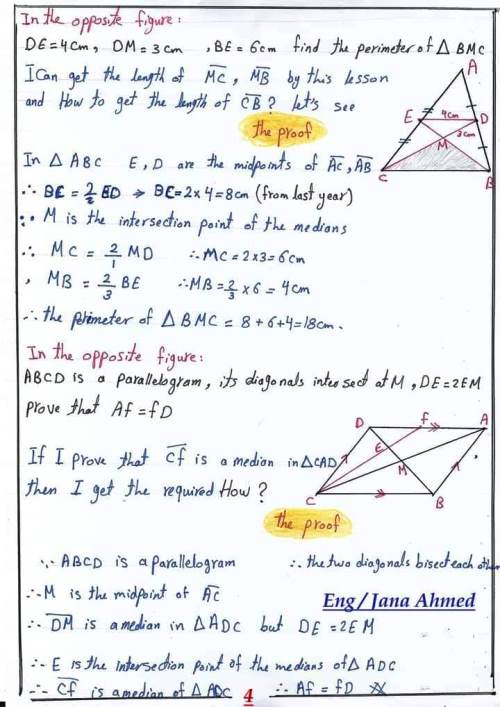 In the opposite figure:
DE=4cm, DM=3cm , BE=6cm find the perimeter of △ BMC
I Can get the length of MC, MB by this lesson
and How to get the length of CB? let's see
the proof
A
E
4cm
D
3cm
M
C
B
In △ ABC E, D are the midpoints of AC, AB
∴ BC = 2 ED ⇒ BC=2×4=8cm (from last year)
∵ M is the intersection point of the medians
∴ MC = 2/1 MD ∴ MC = 2×3=6cm
, MB = 2/3 BE ∴ MB = 2/3 × 6 = 4cm
∴ the perimeter of △ BMC = 8+6+4=18cm.
In the opposite figure:
ABCD is a parallelogram, its diagonals intersect at M, DE=2EM
prove that Af=fD
D
f
A
E
M
C
B
If I prove that Cf is a median in △CAD
then I get the required How?
the proof
∵ ABCD is a parallelogram ∴ the two diagonals bisect each other
∴ M is the midpoint of AC
Eng/Jana Ahmed
∴ DM is a median in △ ADC but DE = 2EM
∴ E is the intersection point of the medians of △ ADC
∴ Cf is a median of △ ADC ∴ Af = fD
4